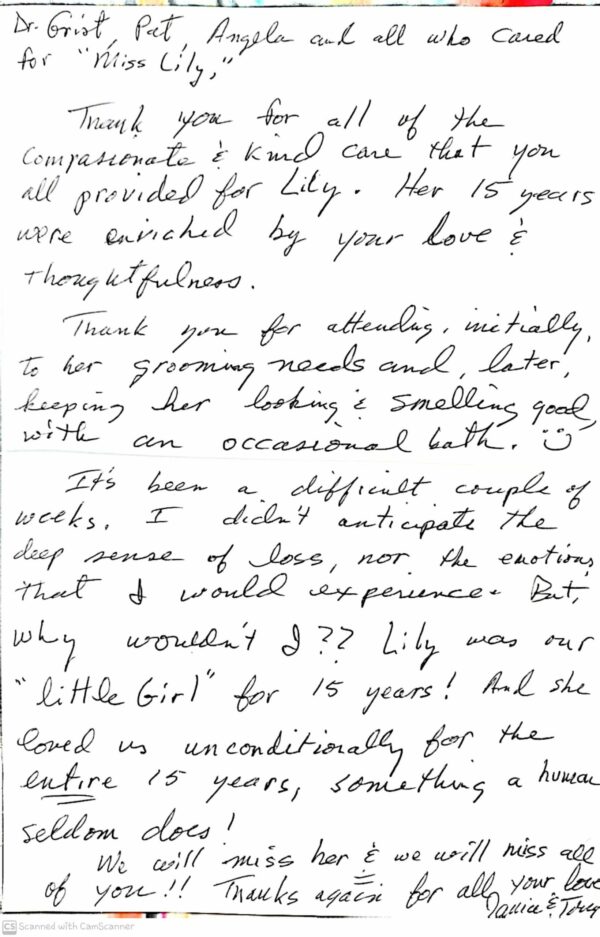 Dr. Grist, Pat, Angela and all who cared
for "Miss Lily,"
Thank you for all of the
compassionate & kind care that you
all provided for Lily. Her 15 years
were enriched by your love &
thoughtfulness.
Thank you for attending, initially,
to her grooming needs and, later,
keeping her looking & smelling good,
with an occasional bath. :)
It's been a difficult couple of
weeks. I didn't anticipate the
deep sense of loss, nor the emotions
that I would experience. But,
why wouldn't I?? Lily was our
"little Girl" for 15 years! And she
loved us unconditionally for the
entire 15 years, something a human
seldom does!
We will miss her & we will miss all
of you!! Thanks again for all your love
Janice &
CS Scanned with CamScanner